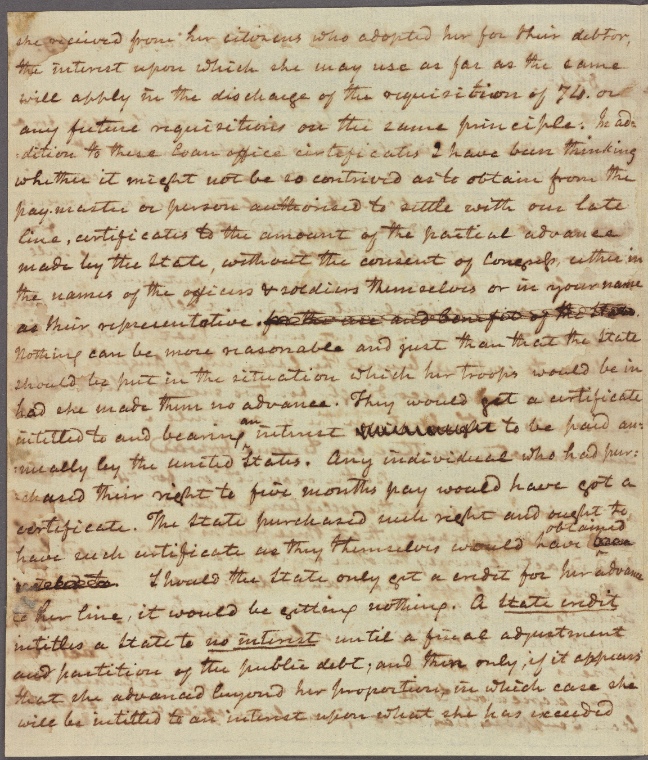 she received from her citizens who adopted her for their debtor,
the interest upon which she may use as far as the same
will apply in the discharge of the requisition of 74. or
any future requisitions on the same principle. In ad:
:dition to these Loan office certificates I have been thinking
whether it might not be so contrived as to obtain from the
pay-master or person authorised to settle with our late
line, certificates to the amount of the partial advance
made by the State, without the consent of Congress, either in
the names of the officers & soldiers themselves or in your name
as their representative. for the use and benefit of the State
Nothing can be more reasonable and just than that the State
should be put in the situation which her troops would be in
had she made them no advance. They would get a certificate
intitled to and bearing an interest to be paid an:
:nually by the united States. Any individual who had pur:
:chased their right to five months pay would have got a
certificate. The State purchased such right and ought to
have such certificate as they themselves would have obtained been
intitled to Should the State only get a credit for her advance
to her line, it would be getting nothing. A state credit
intitles a State to no interest until a final adjustment
and partition of the public debt; and then only, if it appears
that she advanced beyond her proportion, in which case she
will be intitled to an interest upon what she has exceeded